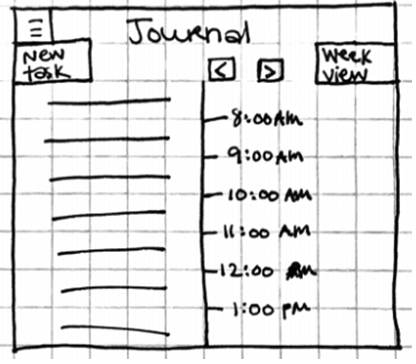 Journal
New
task
< >
Week
view
8:00 AM
9:00 AM
10:00 AM
11:00 AM
12:00 AM
1:00 PM